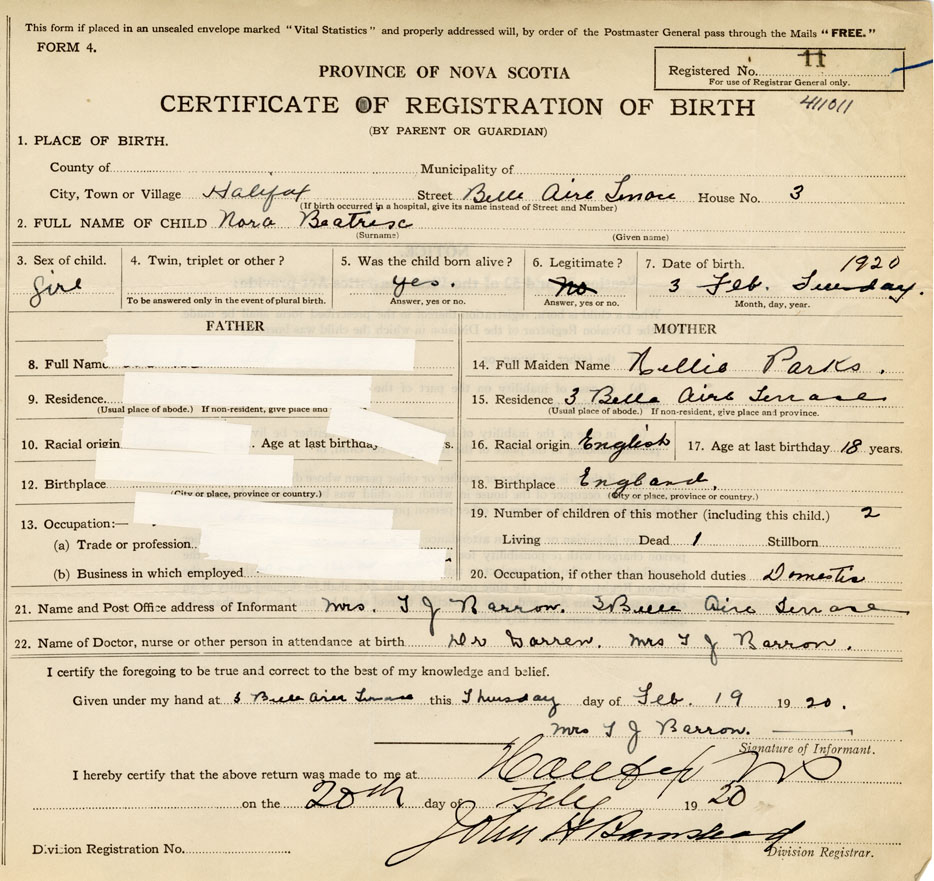 This form if placed in an unsealed envelope marked "Vital Statistics" and properly addressed will, by order of the Postmaster General pass through the Mails "FREE."
FORM 4.
Registered No. 11
For use of Registrar General only.
PROVINCE OF NOVA SCOTIA
CERTIFICATE OF REGISTRATION OF BIRTH 411011
(BY PARENT OR GUARDIAN)
1. PLACE OF BIRTH.
County of Municipality of
City, Town or Village Halifax Street Belle Aire Terrace House No. 3
(If birth occurred in a hospital, give its name instead of Street and Number)
2. FULL NAME OF CHILD Nora Beatrice
(Surname) (Given name)
3. Sex of child. 4. Twin, triplet or other ? 5. Was the child born alive ? 6. Legitimate ? 7. Date of birth. 1920
girl yes. No 3 Feb. Tuesday.
To be answered only in the event of plural birth. Answer, yes or no. Answer, yes or no. Month, day, year.
FATHER
8. Full Name
9. Residence
(Usual place of abode.) If non-resident, give place and
10. Racial origin . Age at last birthday s.
12. Birthplace
(City or place, province or country.)
13. Occupation:—
(a) Trade or profession
(b) Business in which employed
MOTHER
14. Full Maiden Name Nellie Parks.
15. Residence 3 Belle Aire Terrace
(Usual place of abode.) If non-resident, give place and province.
16. Racial origin English 17. Age at last birthday 18 years.
18. Birthplace England.
(City or place, province or country.)
19. Number of children of this mother (including this child.) 2
Living Dead 1 Stillborn
20. Occupation, if other than household duties Domestic
21. Name and Post Office address of Informant Mrs. T J Barron. 3 Belle Aire Terrace
22. Name of Doctor, nurse or other person in attendance at birth Dr Mrs T J Barron.
I certify the foregoing to be true and correct to the best of my knowledge and belief.
Given under my hand at 3 Belle Aire Terrace this Thursday day of Feb. 19 1920.
Mrs T J Barron.
Signature of Informant.
I hereby certify that the above return was made to me at Halifax NS
on the 20th day of Feby 1920
John H Barnstead
Division Registration No. Division Registrar.